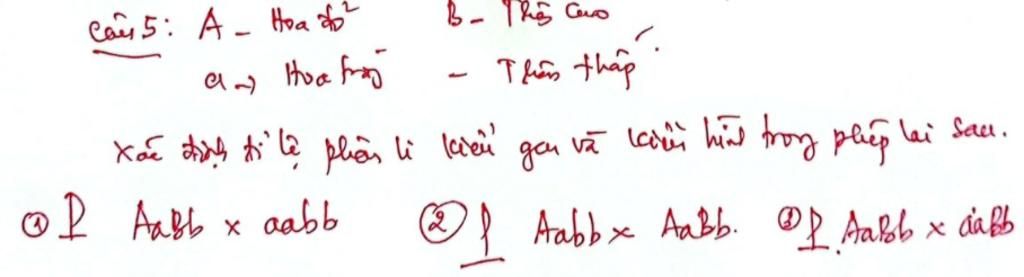 Câu 5: A - Hoa đỏ B - Thân Cao
a → Hoa trắng - Thân thấp.
Xác định tỉ lệ phân li kiểu gen và kiểu hình trong phép lai sau.
① P AaBb x aabb ② P Aabb x AaBb. ③ P. AaBb x aaBb